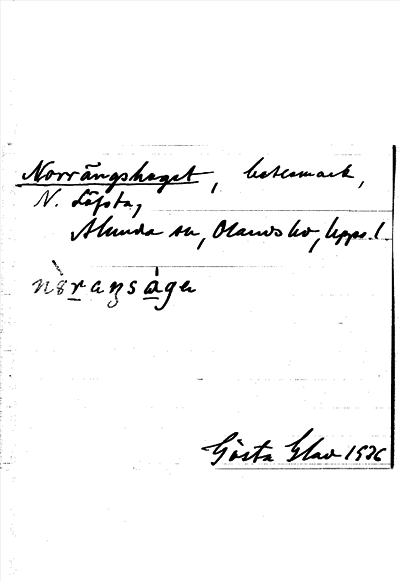 Norrängshaget, betesmark,
N. Löfsta,
Alunda sn, Olands hd, Upps. l.
Gösta Glav 1936